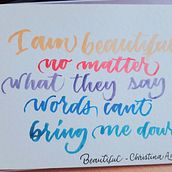 I am beautiful
no matter
what they say
words can't
bring me down
Beautiful - Christina A